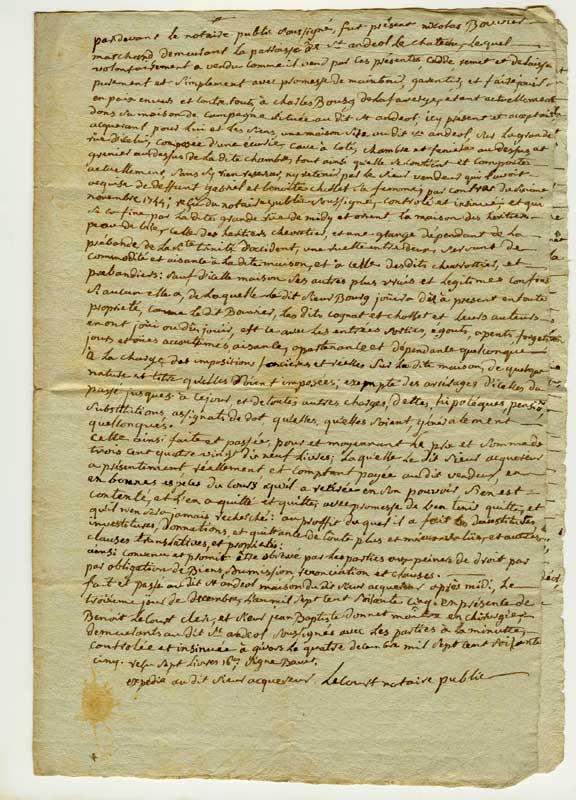 pardevant le notaire public soussigné, fut présent nicolas Bouvier
marchand demeurant la parroisse de St andeol le chateau, lequel
volontairement a vendu comme il vend par ces présentes cedde remet et delaisse
purement et simplement avec promesse de maintenir, garentir, et faire jouir
en paix envers et contre tous, à charles Bourg de la faverge, etant actuellement
dans sa maison de campagne située au dit St andeol, icy présent et acceptant
acquerant pour lui et les siens, une maison size au dit St andeol, sur la grande
composée d'une écurie, cave à coté, chambre et fenière au dessus et
grenier au dessus de la dite chambre, tout ainsi qu'elle se contient et comporte
actuellement, sans s'y rien reserver, ny retenir par le sieur vendeur qui l'avoit
acquise de deffunt gabriel et benoite chollet sa femme, par contrat du
novembre 1744; reçu du notaire public soussigné, controlé et insinué, et qui
se confine par la dite grande rue de midy et orient la maison des heritiers
celle des heritiers chevrottier, et une grange dépendant de la
prébande de la Ste trinité d'occident, une entredeux, servant de
commodité et aisance à la dite maison, et à celle des dits chevrottier, et
prebandiers: sauf d'icelle maison ses autres plus vrais et legitimes confins
si aucun elle a, de laquelle le dit sieur Bourg jouira dès à present en toute
proprieté, comme le dit Bouvier, les dits et chollet et leurs auteurs
en ont joüi ou dû joüir, et ce avec les entrées sorties, égouts,
jours et vües accoutumés aisance, apartenance et dépendance quelconque
à la charge des impositions foncières et réelles sur la dite maison, de quelque
nature et titre qu'elles soient imposées; exempte des arrérages d'icelles du
passé jusques à ce jour, et de toutes autres charges, dettes, hipotèques, pensions
substitutions, assignats de dot qu'elles, qu'elles soient généralement
quelconques.
Cette ainsi faite et passée, pour et moyennant le prix et somme de
trois cent quatre vingt dix neuf livres; laquelle le dit sieur acquereur
a présentement réellement et comptant payée au dit vendeur, en
en bonnes espèces du cours qu'il a retirée en son pouvoir s'en est
contenté, et l'en a quitté et quitte, avec promesse de l'en tenir quitte, et
qu'il n'en sera jamais recherché: au proffit duquel il a fait les
investitures, donnations, et quittance de toute plus et mieux value, et autres
clauses translatives, et propriété.
ainsi convenu et promit être observé par les parties aux peines de droit par
par obligation de Biens, soumission, renonciation et clauses.
fait et passé au dit St andeol maison du dit sieur acquereur après midi, le
troisieme jour de decembre, l'an mil sept cent soixante cinq. en présence de
Benoit le court clerc, et sieur jean Baptiste donnet maitre en chirurgie
demeurants au dit St andeol soussignés avec les parties à la minutte,
controllée et insinuée à givors le quatre decembre mil sept cent soixante
cinq. reçu sept livres signé
expedié au dit sieur acquereur. Lecourt notaire public